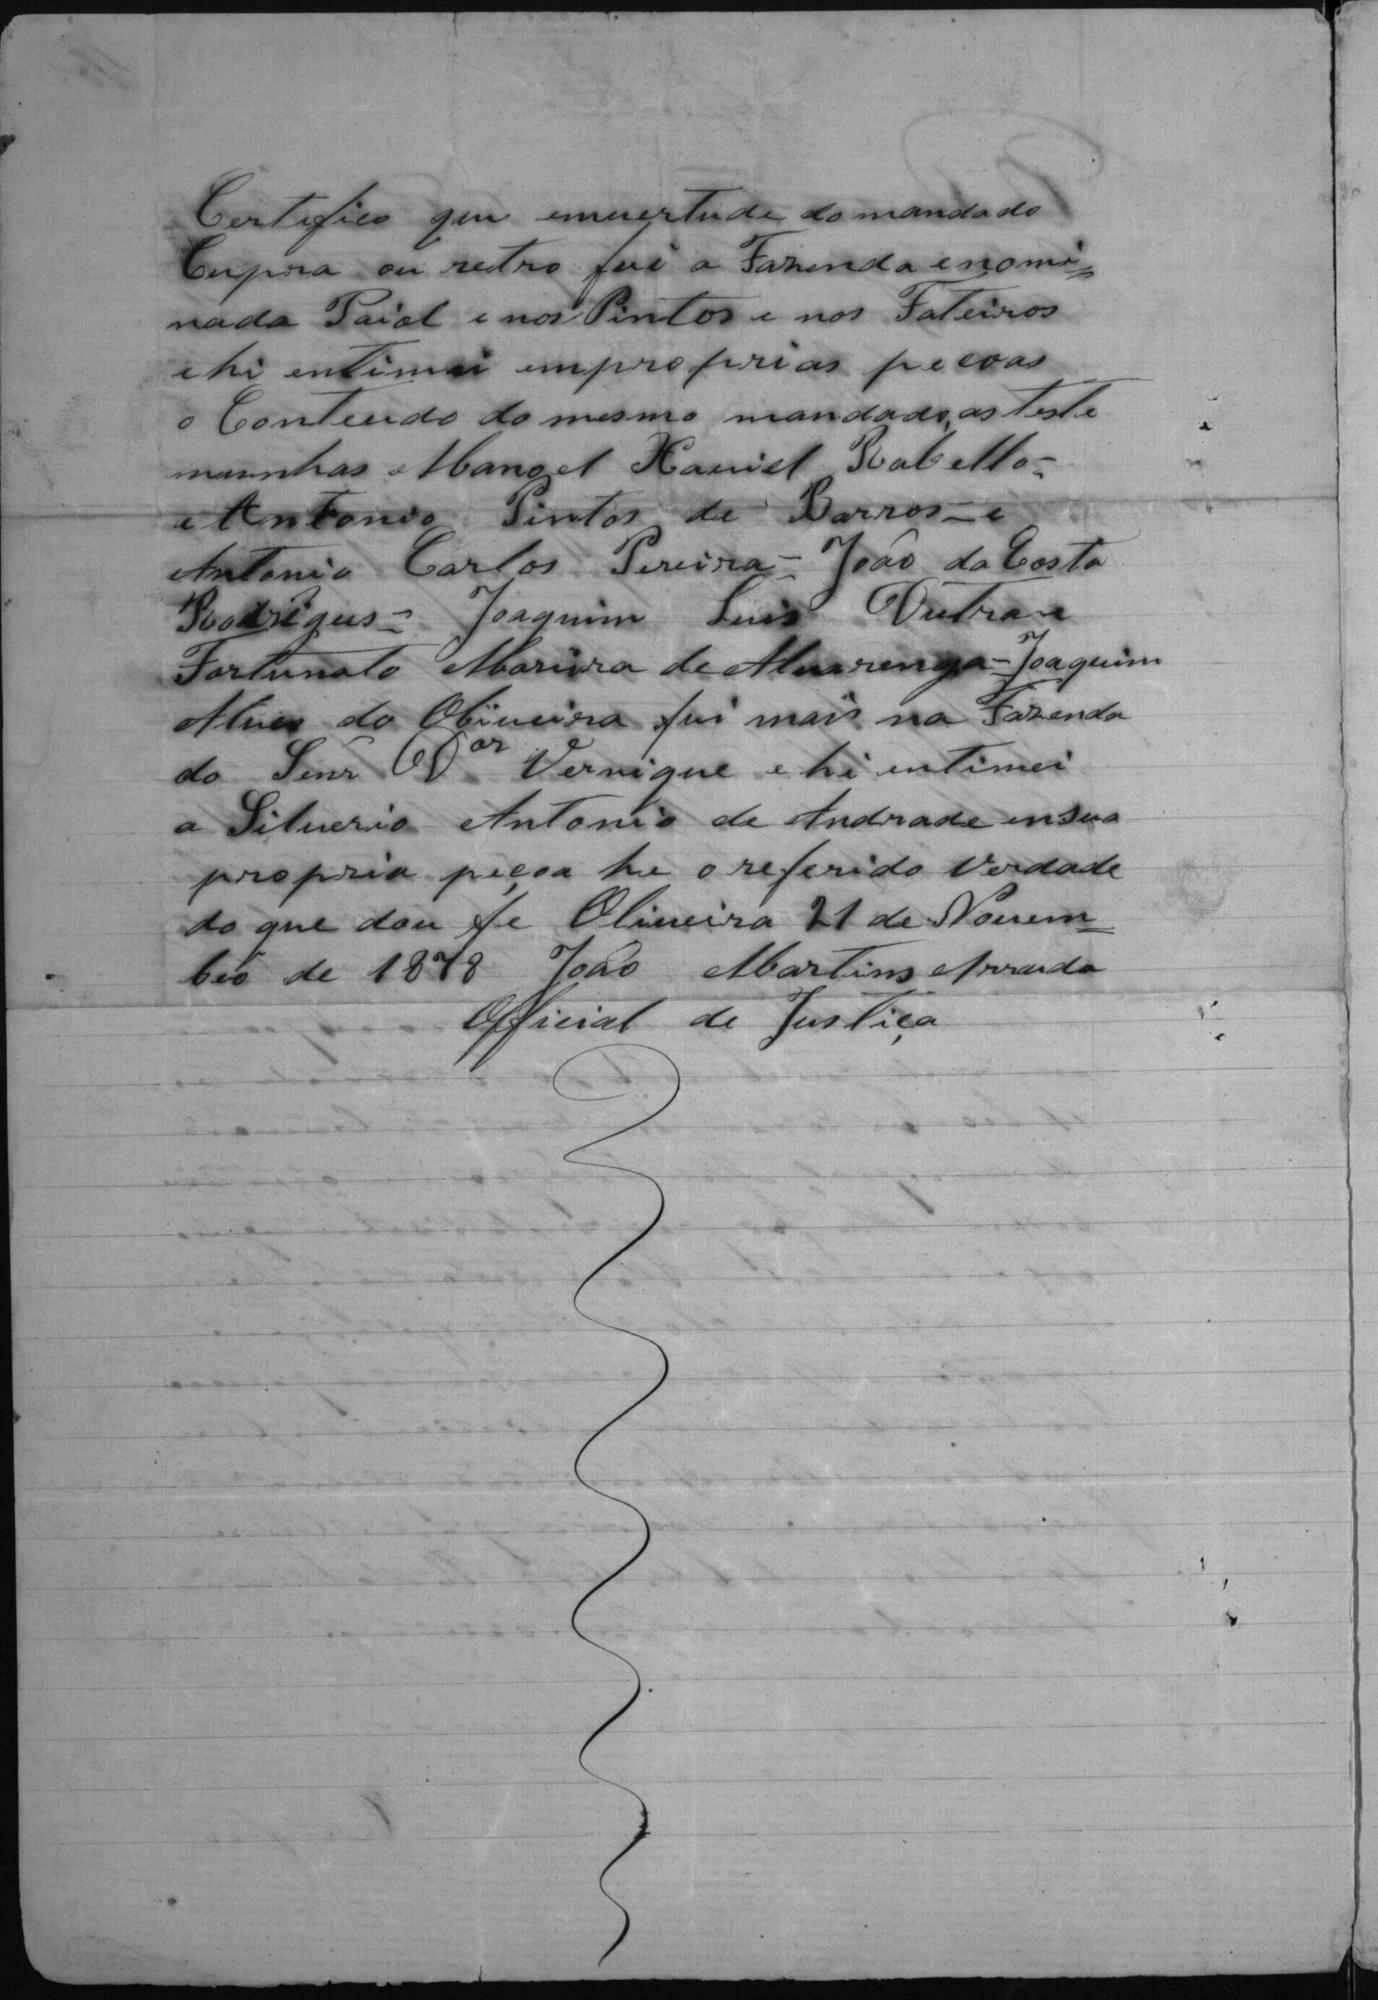 Certifico que emvertude do mandado
Cupra ou retro fui a Fazenda enomi=
nada Paiol e nos Pintos e nos Fateiros
ehi entimei emproprias pecoas
o Conteudo do mesmo mandado, as teste
munhas Manoel Xaviel Rabello=
e Antonio Pintos de Barros=e
Antonio Carlos Pereira= João da Costa
Rodrigus= Joaquim Luis Dutra e
Fortunato Moreira de Alvarenga=Joaquim
Alves do Oliveira fui mais na Fazenda
do Senr Dor Vernique ehi entimei
a Silverio Antonio de Andrade en Sua
propria peçoa he o referido Verdade
do que dou fe Oliveira 21 de Novem=
bro de 1878 João Martins Arruda
Official de Justiça